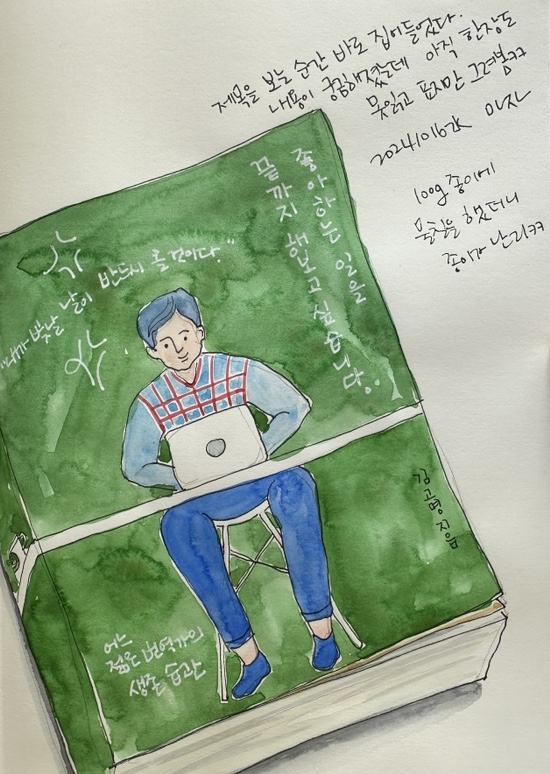 제목을 보는 순간 바로 집어들었다.
내용이 궁금해졌는데 아직 한장도
못읽고 표지만 그려봄ㅋㅋ
2024.1016水 마자
100g 종이에
물칠을 했더니
종이가 난리ㅋㅋ
좋아하는 일을
끝까지 해보고 싶습니다.
"내가 빛날 날이 반드시 올 것이다."
김고명 지음
어느
젊은 번역가의
생존 습관